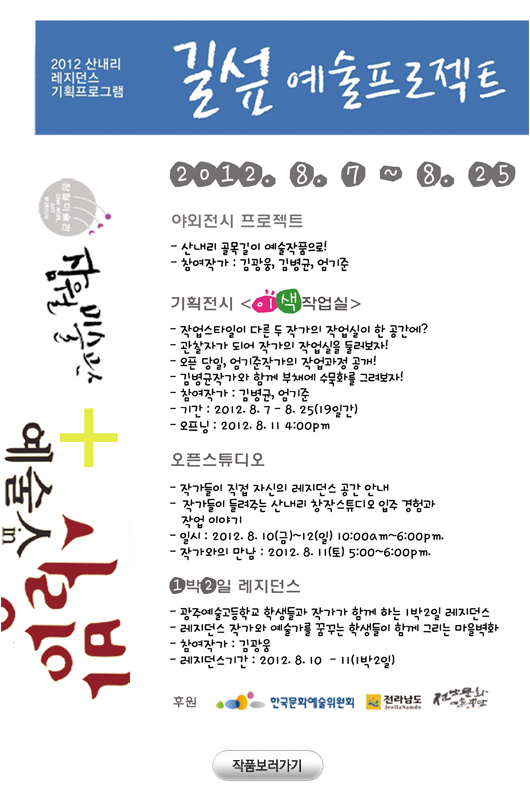 2012 산내리
레지던스
기획프로그램
길섶 예술프로젝트
2012. 8. 7 ~ 8. 25
잠월미술관
야외전시 프로젝트
- 산내리 골목길이 예술작품으로!
- 참여작가 : 김광웅, 김병균, 엄기준
기획전시 <이색작업실>
- 작업스타일이 다른 두 작가의 작업실이 한 공간에?
- 관찰자가 되어 작가의 작업실을 들려보자!
- 오픈 당일, 엄기준작가의 작업과정 공개!
- 김병균작가와 함께 부채에 수묵화를 그려보자!
- 참여작가 : 김병균, 엄기준
- 기간 : 2012. 8. 7 - 8. 25(19일간)
- 오프닝 : 2012. 8. 11 4:00pm
잠월미술관
+
예술人in
사랑방
오픈스튜디오
- 작가들이 직접 자신의 레지던스 공간 안내
- 작가들이 들려주는 산내리 창작스튜디오 입주 경험과
작업 이야기
- 일시 : 2012. 8. 10(금)~12(일) 10:00am~6:00pm.
- 작가와의 만남 : 2012. 8. 11(토) 5:00~6:00pm.
1박2일 레지던스
- 광주예술고등학교 학생들과 작가가 함께 하는 1박2일 레지던스
- 레지던스 작가와 예술가를 꿈꾸는 학생들이 함께 그리는 마을벽화
- 참여작가 : 김광웅
- 레지던스기간 : 2012. 8. 10 - 11(1박2일)
후원
한국문화예술위원회
전라남도
JeollaNamdo
전남문화
예술재단
작품보러가기